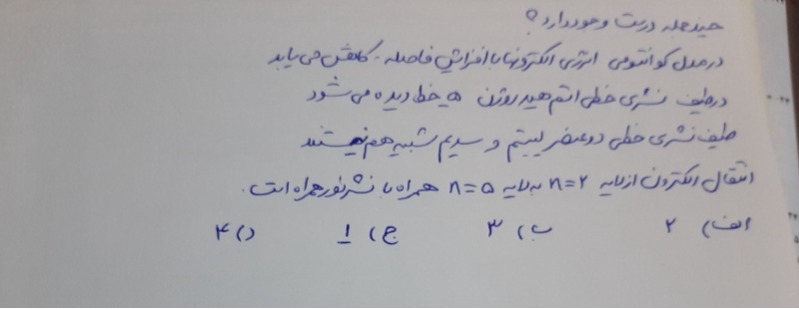 چند جمله درست وجود دارد؟
در مدل کوانتومی انرژی الکترونها با افزایش فاصله کاهش می یابد
در طیف نشری خطی اتم هیدروژن ۵ خط دیده می شود
طیف نشری خطی دو عنصر لیتیم و سدیم شبیه هم نیستند
انتقال الکترون از لایه n=۲ به لایه n=۵ همراه با نشر نور همراه است.
الف) ۲ ب) ۳ ج) ۱ د) ۴